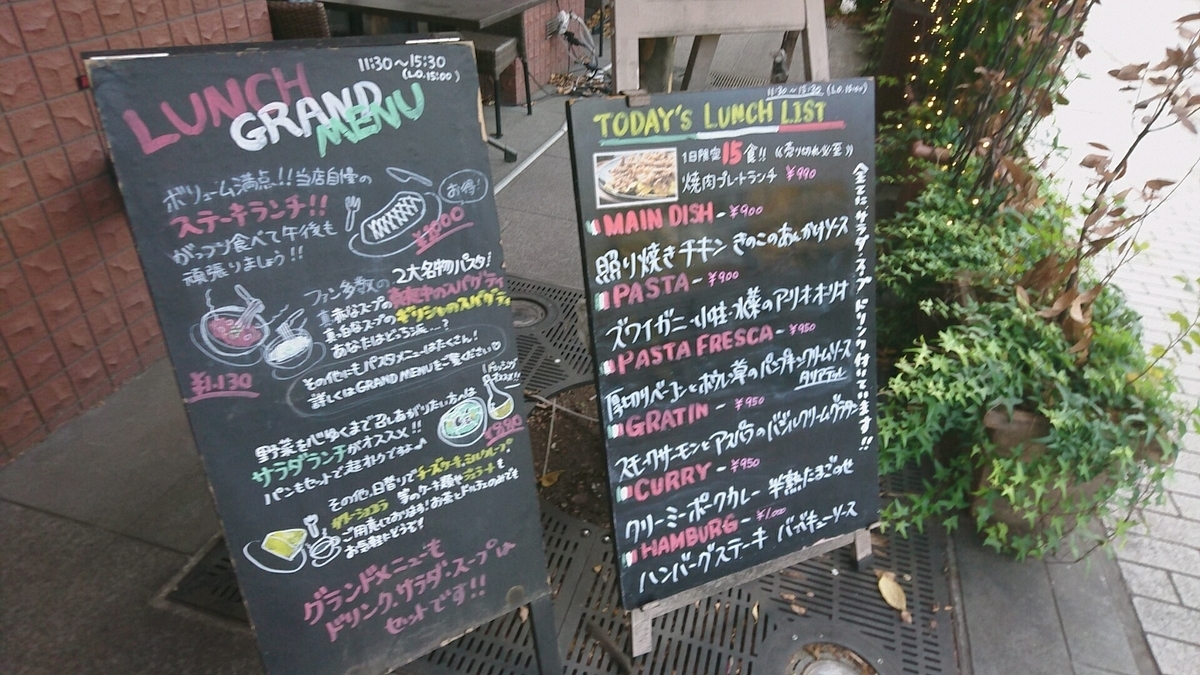 11:30〜15:30
(L.O.15:00)
LUNCH
GRAND
MENU
ボリューム満点!!当店自慢の
ステーキランチ!!
がっつり食べて午後も
頑張りましょう!!
お得!
ファン多数の2大名物パスタ!
真っ赤なスープの
真っ白なスープのギリシャのスパゲティ
あなたはどっち派…?
¥1,130
その他にもパスタメニューはたくさん!
詳しくはGRAND MENUをご覧ください
野菜を心ゆくまで召しあがりたい方は
サラダランチがオススメ!!
パンもセットで超おトクですよ♪
その他、日替りでチーズケーキ、ミルクレープ、
ガトーショコラ等のケーキ類やジェラートも
ご用意しております!お茶とドルチェのみでも
お気軽にどうぞ!
グランドメニューも
ドリンク、サラダ・スープは
セットです!!
11:30〜15:30 (L.O.15:00)
TODAY'S LUNCH LIST
1日限定15食!! 《売り切れ必至》
焼肉プレートランチ ¥990
MAIN DISH - ¥900
照り焼きチキン きのこのあんかけソース
PASTA - ¥900
ズワイガニ・小柱・水菜のアーリオオーリオ
PASTA FRESCA - ¥950
厚切りベーコンとホウレン草のパンプキンクリームソース
タリアテッレ
GRATIN - ¥950
スモークサーモンとアスパラのバジルクリームグラタン
CURRY - ¥950
クリーミーポークカレー 半熟たまごのせ
HAMBURG - ¥1,000
ハンバーグステーキ バーベキューソース
全てにサラダ・スープ ドリンク付いています!!